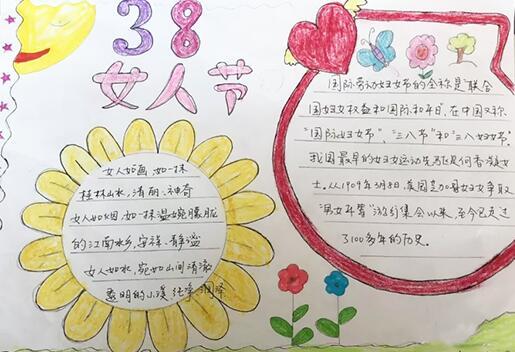 38
女人节
女人如画,如一抹
桂林山水,清丽、神奇
女人如烟,如一抹温婉朦胧
的江南水乡,安祥、静谧
女人如水,宛如山间清澈
透明的小溪 纯净 润泽
国际劳动妇女节的全称是"联合
国妇女权益和国际和平日",在中国又称
"国际妇女节"、"三八节"和"三八妇女节"。
我国最早的妇女运动先驱是何香凝女
士,从1909年3月8日,美国芝加哥妇女争取
"男女平等"游行集会以来,至今已走过
了100多年的历史。